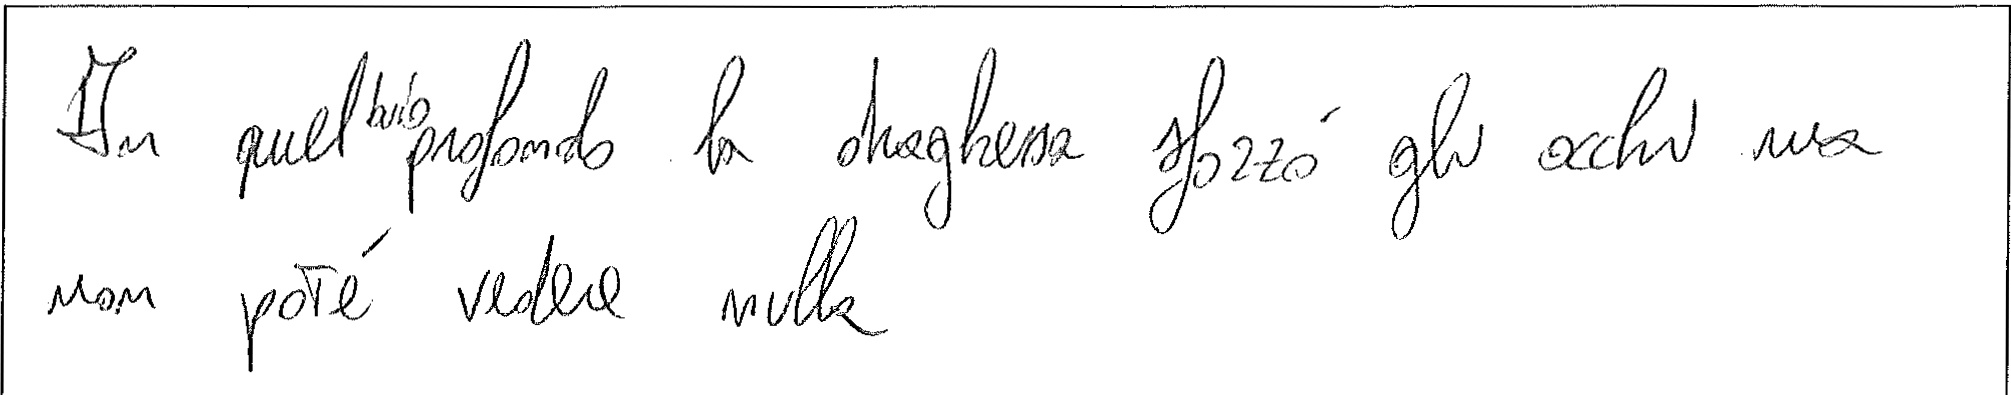 In quel buio profondo la draghessa sfozzó gli occhi ma
non poté vedere nulla